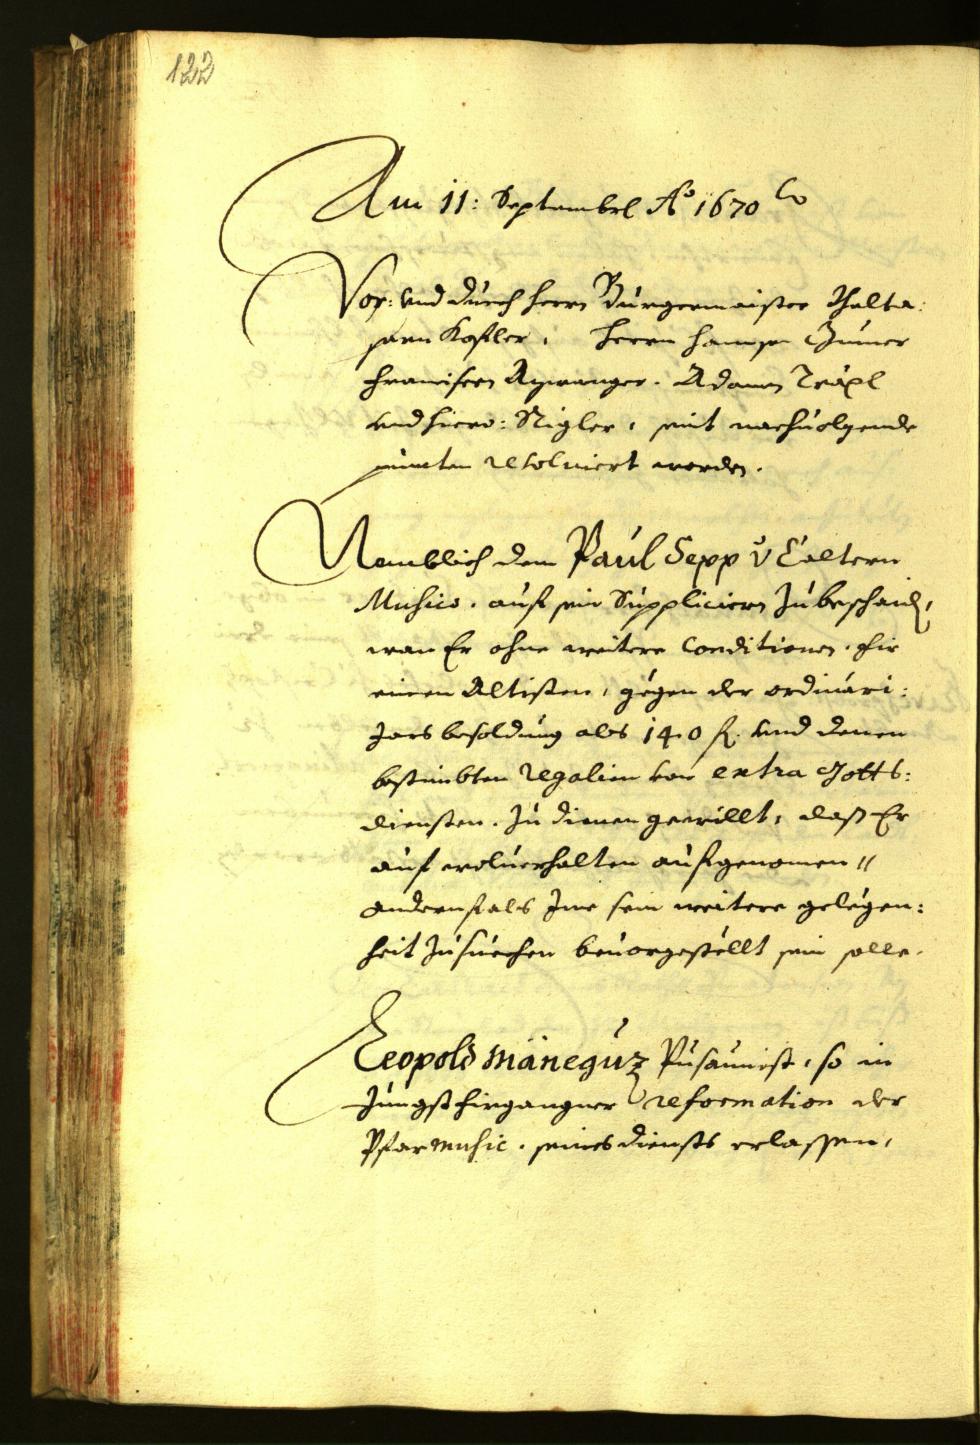 122
Am 11: Septembel Aº 1670
Vor: und durch herrn Burgermaister
Kofler, herrn
Francisen Aywanger. Adamen Träxl
und Hiero: Nigler, mit nachuolgende
puncten resolviert worden.
Namblich dem Paul Sepp v Caltern
Musico. auf sein Suppliciern zubeschaid,
wan Er ohne weitere Conditionen. fir
einen Altisten, gegen der ordinari:
Jars besoldung als 140 fl. und denen
bestimbten Regalien von extra Gotts:
diensten. zu dienen gewillt, dass Er
auf wolverhalten aufgenomen //
andernfals Ime sein weitere gelegen:
heit zusuechen beuorgestellt sein solle.
Leopold Mäneguz Pusaunist, so in
Jungst firgangner reformation der
Pfarmusic. seines diensts erlassen,